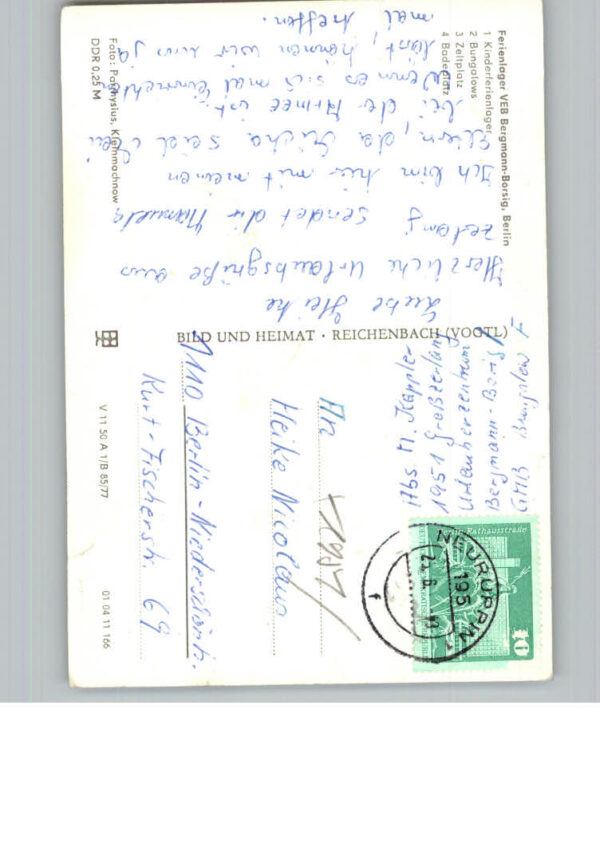 Ferienlager VEB Bergmann-Borsig, Berlin
1 Kinderferienlager
2 Bungalows
3 Zeltplatz
4 Badeplatz
Liebe Heike
Herzliche Urlaubsgrüße aus
sendet dir Manuela
Ich bin hier mit meinen
Eltern, da Micha seid
bei der Armee ist
Wenn es sich mal einrichten
läst, können wir uns ja
mal treffen.
Foto: Parchysius, Kleinmachnow
DDR 0,25 M
BILD UND HEIMAT · REICHENBACH (VOGTL)
V 11 50 A 1/B 85/77
01 04 11 166
Abs M. Kappler
1951 Großzerlang
Urlauberzentrum
Bergmann-Borsig
Bunglow F
Berlin Rathausstraße
10
NEURUPPIN
195
An
1957
Heike Nicolaus
1110 Berlin-Niederschönh.
Kurt-Fischerstr. 69